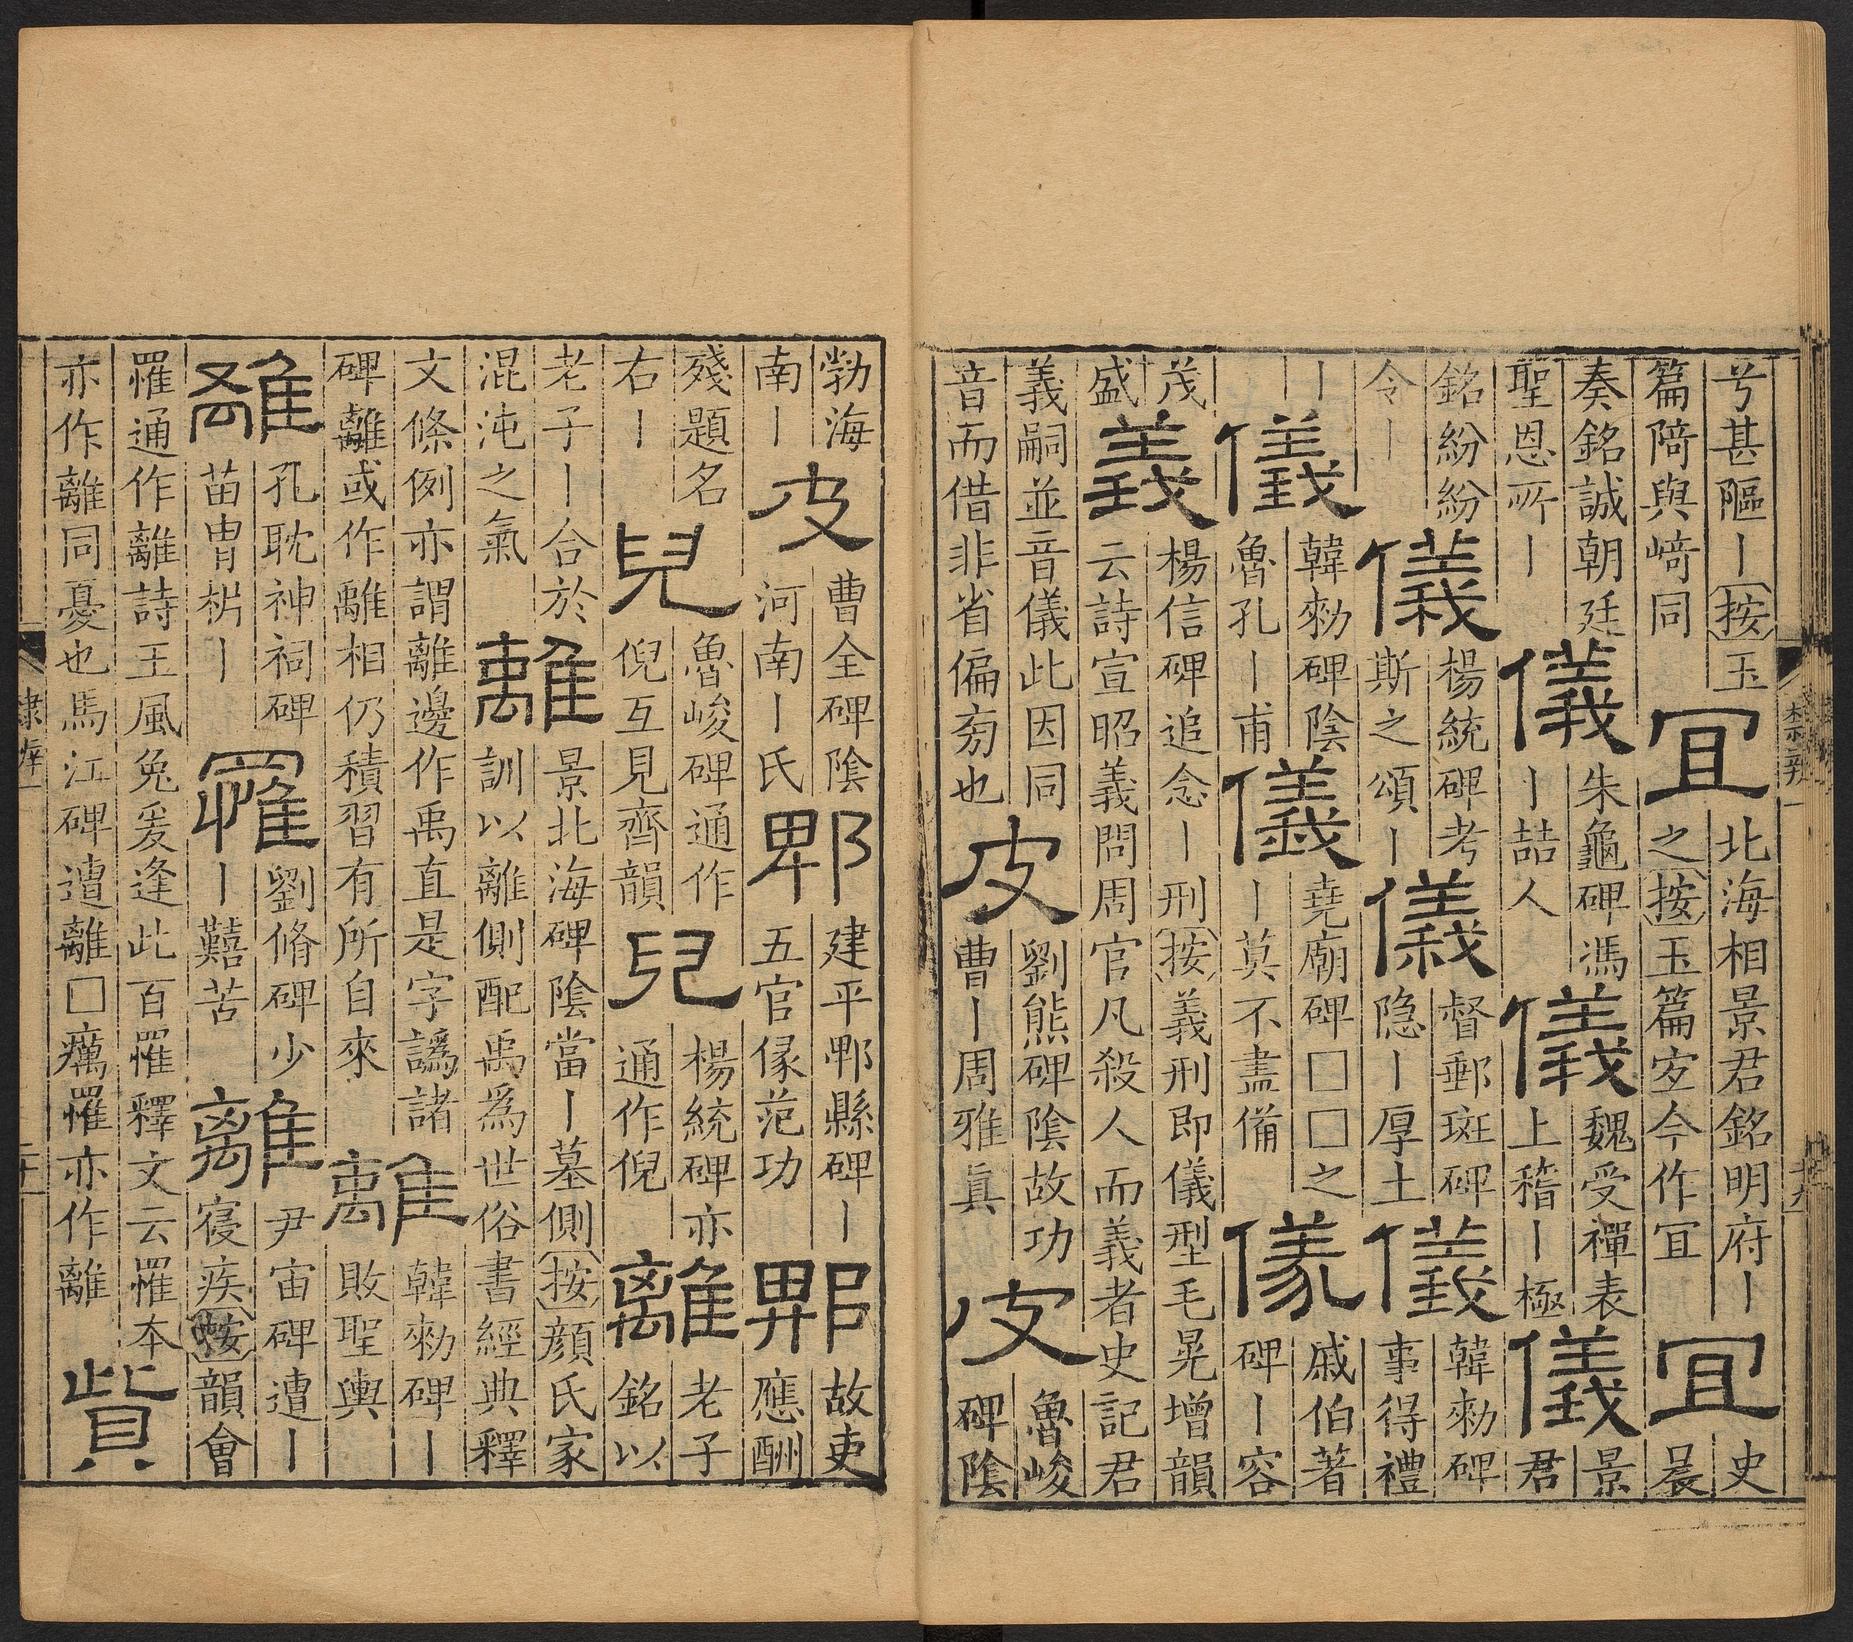 兮甚陋丨按玉
篇陭與崎同
宜
北海相景君銘明府丨
之按玉篇宐今作宜
宜
史
晨
奏銘誠朝廷
聖恩所丨
儀
朱龜碑馮
丨喆人
儀
魏受禪表
上稽丨極
儀
景
君
銘紛紛
令丨
儀
楊統碑考
斯之頌丨
儀
督郵斑碑
隐丨厚土
儀
韓勑碑
事得禮
丨
儀
韓勑碑陰
魯孔丨甫
儀
堯廟碑□□之
丨莫不盡備
儀
戚伯著
碑丨容
茂
盛
義
楊信碑追念丨刑按義刑即儀型毛晃增韻
云詩宣昭義問周官凡殺人而義者史記君
義嗣並音儀此因同
音而借非省偏旁也
皮
劉熊碑陰故功
曹丨周雅真
皮
魯峻
碑陰
勃海
南丨
皮
曹全碑陰
河南丨氏
郫
建平郫縣碑丨
五官掾范功
郫
故吏
應酬
殘題名
右丨
兒
魯峻碑通作
倪互見齊韻
兒
楊統碑亦
通作倪
離
老子
銘以
老子丨合於
混沌之氣
離
景北海碑陰當丨墓側按顏氏家
訓以離側配禹為世俗書經典釋
文條例亦謂離邊作禹直是字譌諸
碑離或作離相仍積習有所自來
離
韓勑碑丨
敗聖輿
離
孔耽神祠碑
苗胄枿丨
罹
劉脩碑少
丨囏苦
離
尹宙碑遭丨
寑疾按韻會
罹通作離詩王風兔爰逢此百罹釋文云罹本
亦作離同憂也馬江碑遭離□癘罹亦作離
貲